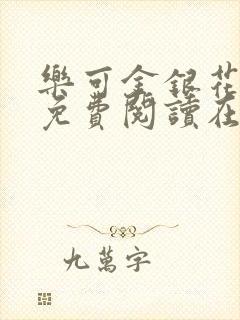 樂可金銀花
免費閱讀在
九萬字